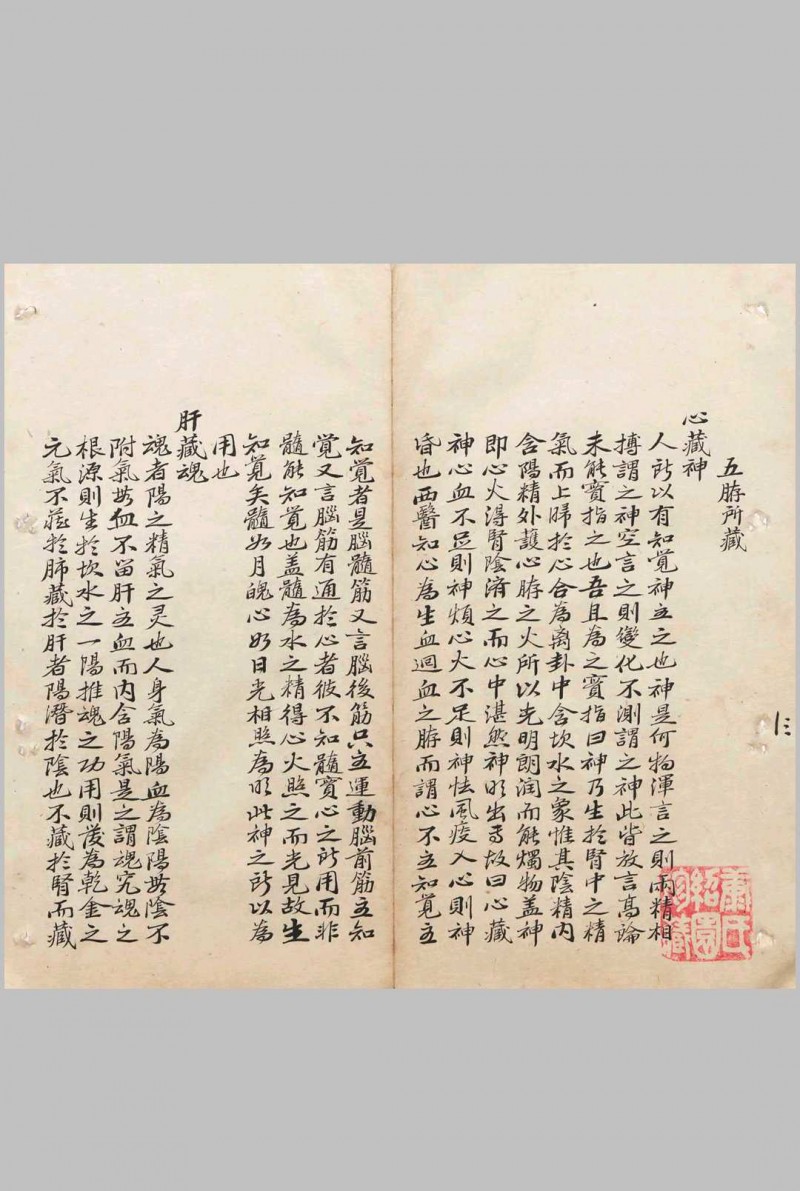 五脏所藏
心藏神
人所以有知覚神主之也神是何物渾言之則兩精相
搏謂之神空言之則變化不測謂之神此皆放言高論
未能實指之也吾且為之實指曰神乃生於腎中之精
氣而上歸於心合為离卦中含坎水之象惟其陰精內
含陽精外護心脏之火所以光明朗润而能燭物盖神
即心火得腎陰濟之而心中湛然神明出焉故曰心藏
神心血不足則神煩心火不足則神怯風痰入心則神
昏也西醫知心為生血迴血之脏而謂心不主知覚主
知覚者是腦髓筋又言腦後筋只主運動腦前筋主知
覚又言腦筋有通於心者彼不知髓實心之所用而非
髓能知覚也盖髓為水之精得心火照之而光見故生
知覚矣髓如月魄心如日光相照為明此神之所以為
用也
肝藏魂
魂者陽之精氣之灵也人身氣為陽血為陰陽無陰不
附氣無血不留肝主血而內含陽氣是之謂魂究魂之
根源則生於坎水之一陽推魂之功用則發為乾金之
元氣不藏於肺藏於肝者陽潛於陰也不藏於腎而藏
蕭氏